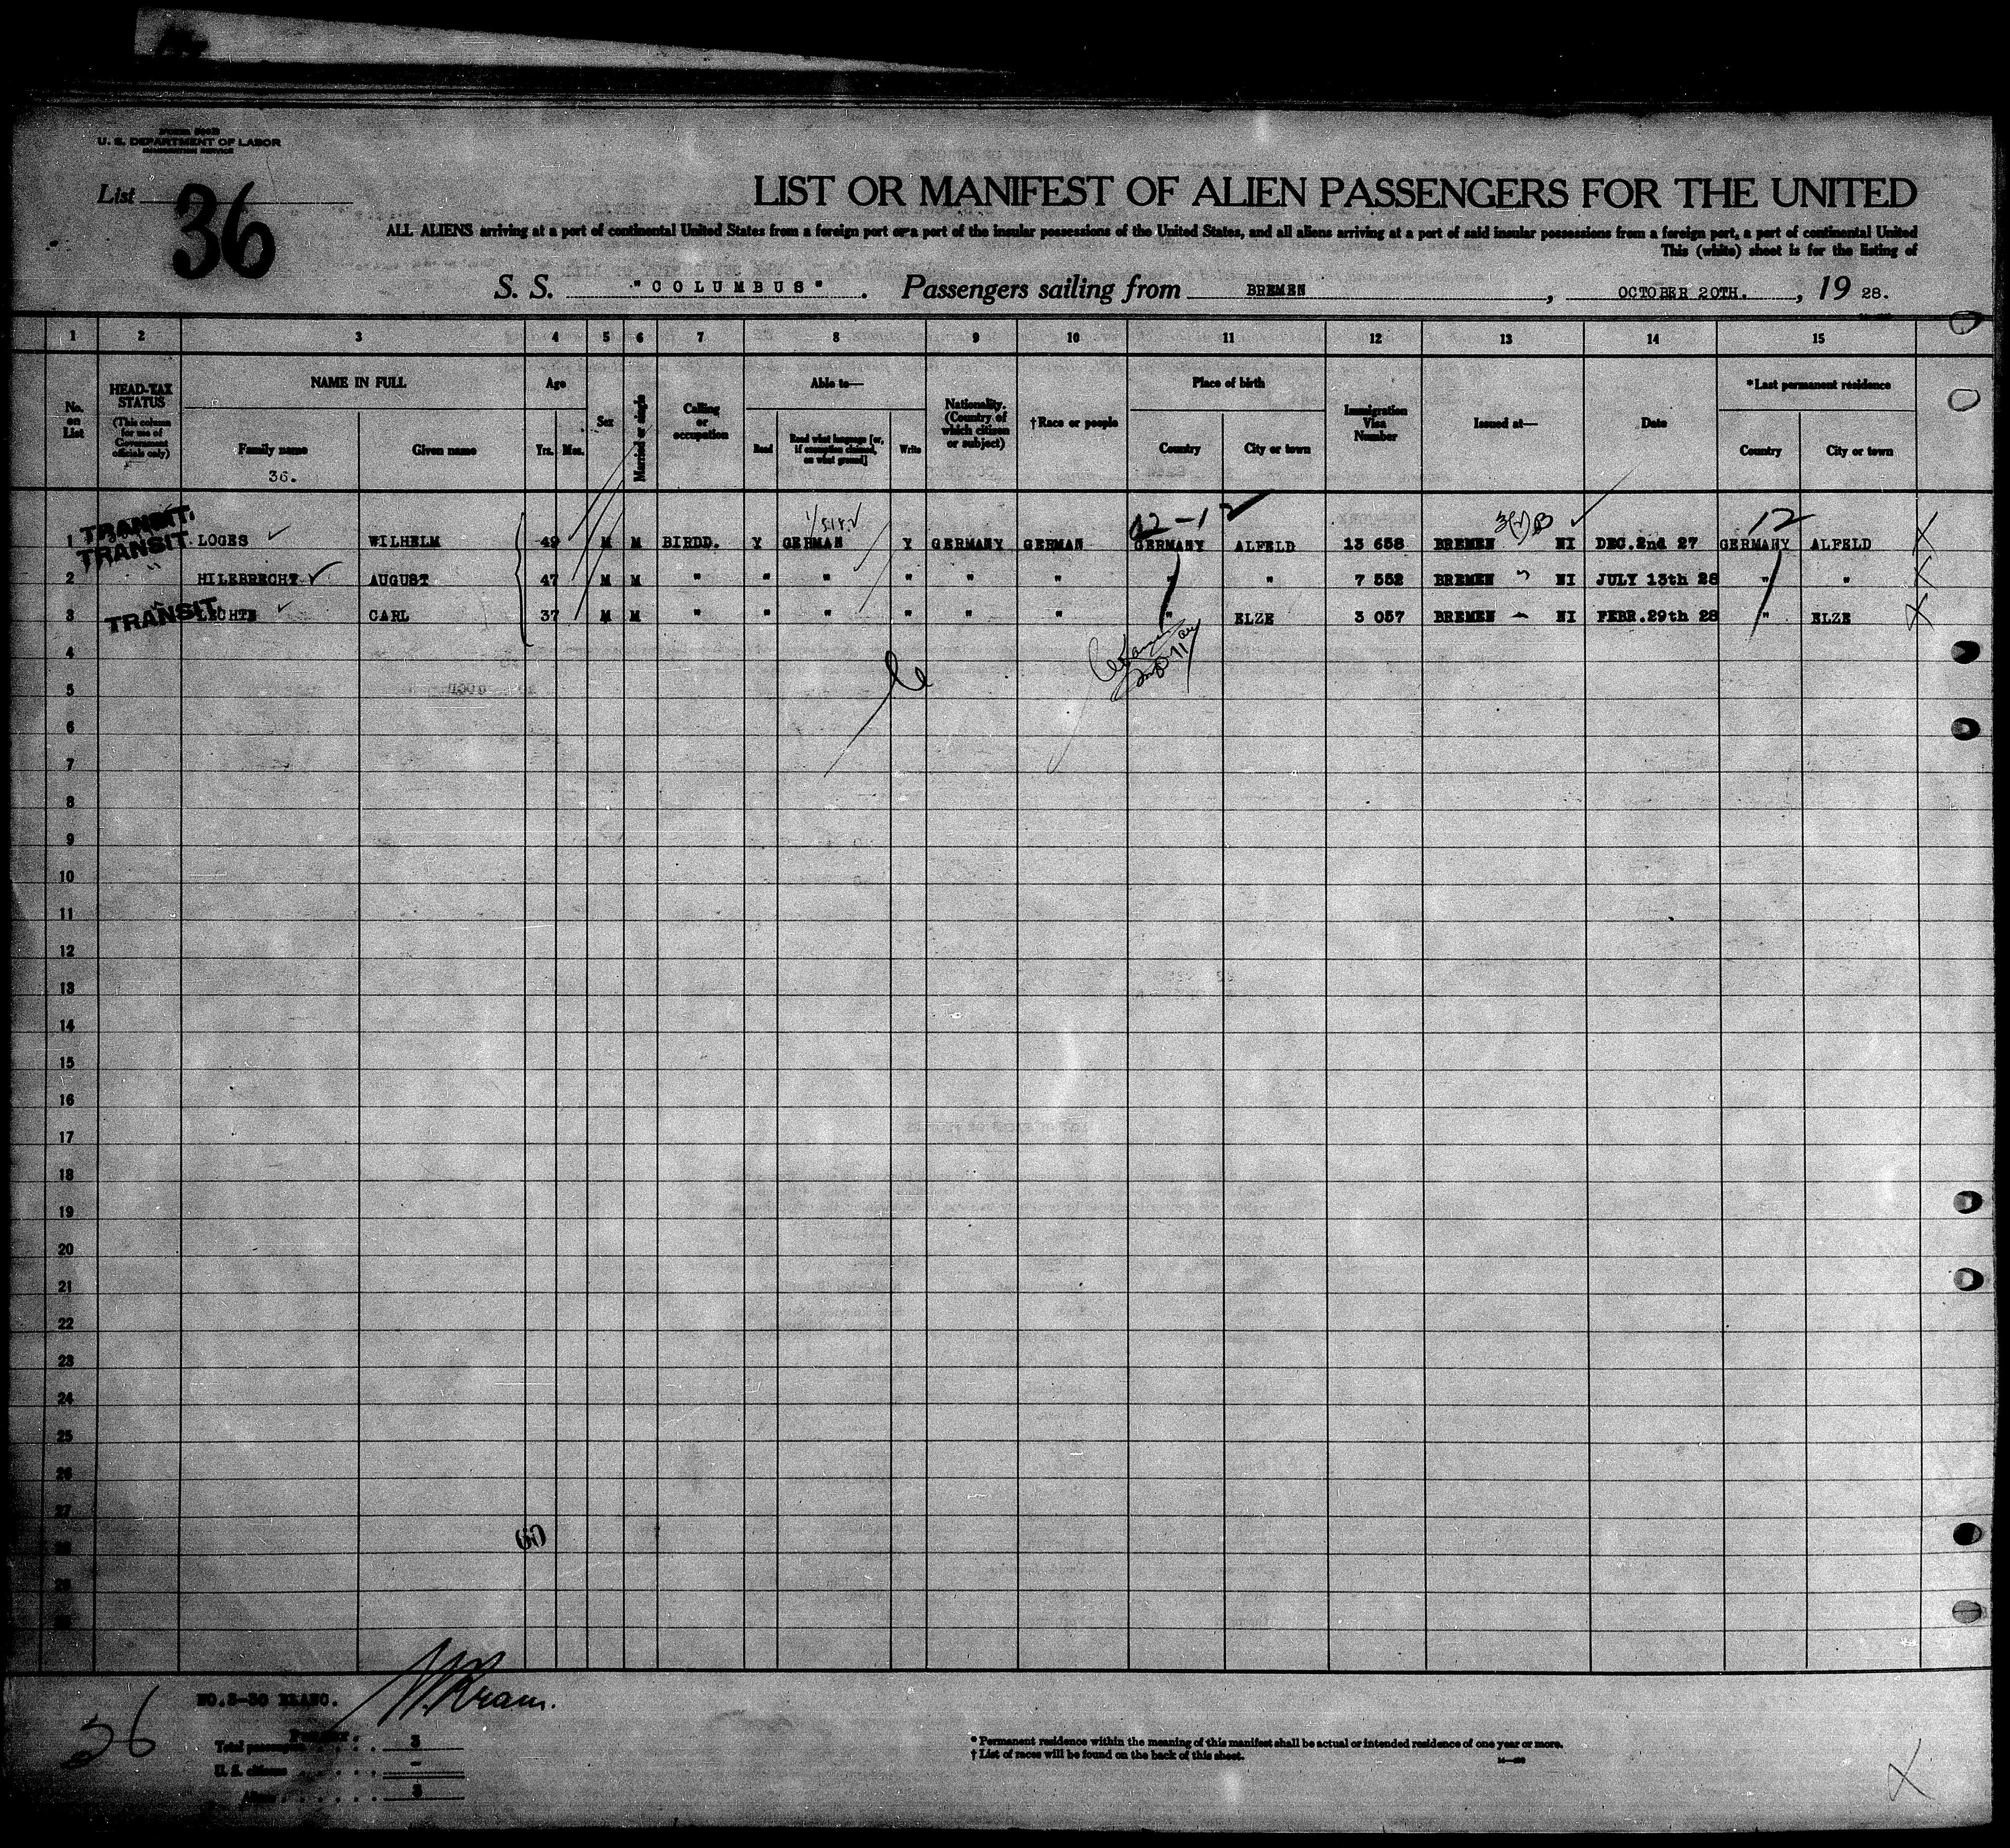 U. S. DEPARTMENT OF LABOR
IMMIGRATION SERVICE
List 36
LIST OR MANIFEST OF ALIEN PASSENGERS FOR THE UNITED
ALL ALIENS arriving at a port of continental United States from a foreign port or a port of the insular possessions of the United States, and all aliens arriving at a port of said insular possessions from a foreign port, a port of continental United
This (white) sheet is for the listing of
S. S. "COLUMBUS". Passengers sailing from BREMEN, OCTOBER 20TH., 19 28.
1 2 3 4 5 6 7 8 9 10 11 12 13 14 15
No. on List
HEAD-TAX STATUS
(This column for use of Government officials only)
NAME IN FULL
Family name
Given name
36.
Age
Yrs. Mos.
Sex
Married or single
Calling or occupation
Able to—
Read
Read what language [or, if exemption claimed, on what ground]
Write
Nationality. (Country of which citizen or subject)
†Race or people
Place of birth
Country
City or town
Immigration Visa Number
Issued at—
Date
*Last permanent residence
Country
City or town
12-12
12
TRANSIT.
1 TRANSIT LOGES WILHELM 49 M M BIRDD. Y GERMAN Y GERMANY GERMAN GERMANY ALFELD 13 658 BREMEN NI DEC.2nd 27 GERMANY ALFELD
2 HILEBRECHT AUGUST 47 M M " " " " " " " " 7 552 BREMEN NI JULY 13th 28 " "
3 TRANSIT. LECHTE CARL 37 M M " " " " " " " ELZE 3 057 BREMEN NI FEBR.29th 28 " ELZE
4
5
6
7
8
9
10
11
12
13
14
15
16
17
18
19
20
21
22
23
24
25
26
27
28
29
30
36
Total passengers 3
U. S. citizens –
Aliens 3
* Permanent residence within the meaning of this manifest shall be actual or intended residence of one year or more.
† List of races will be found on the back of this sheet.